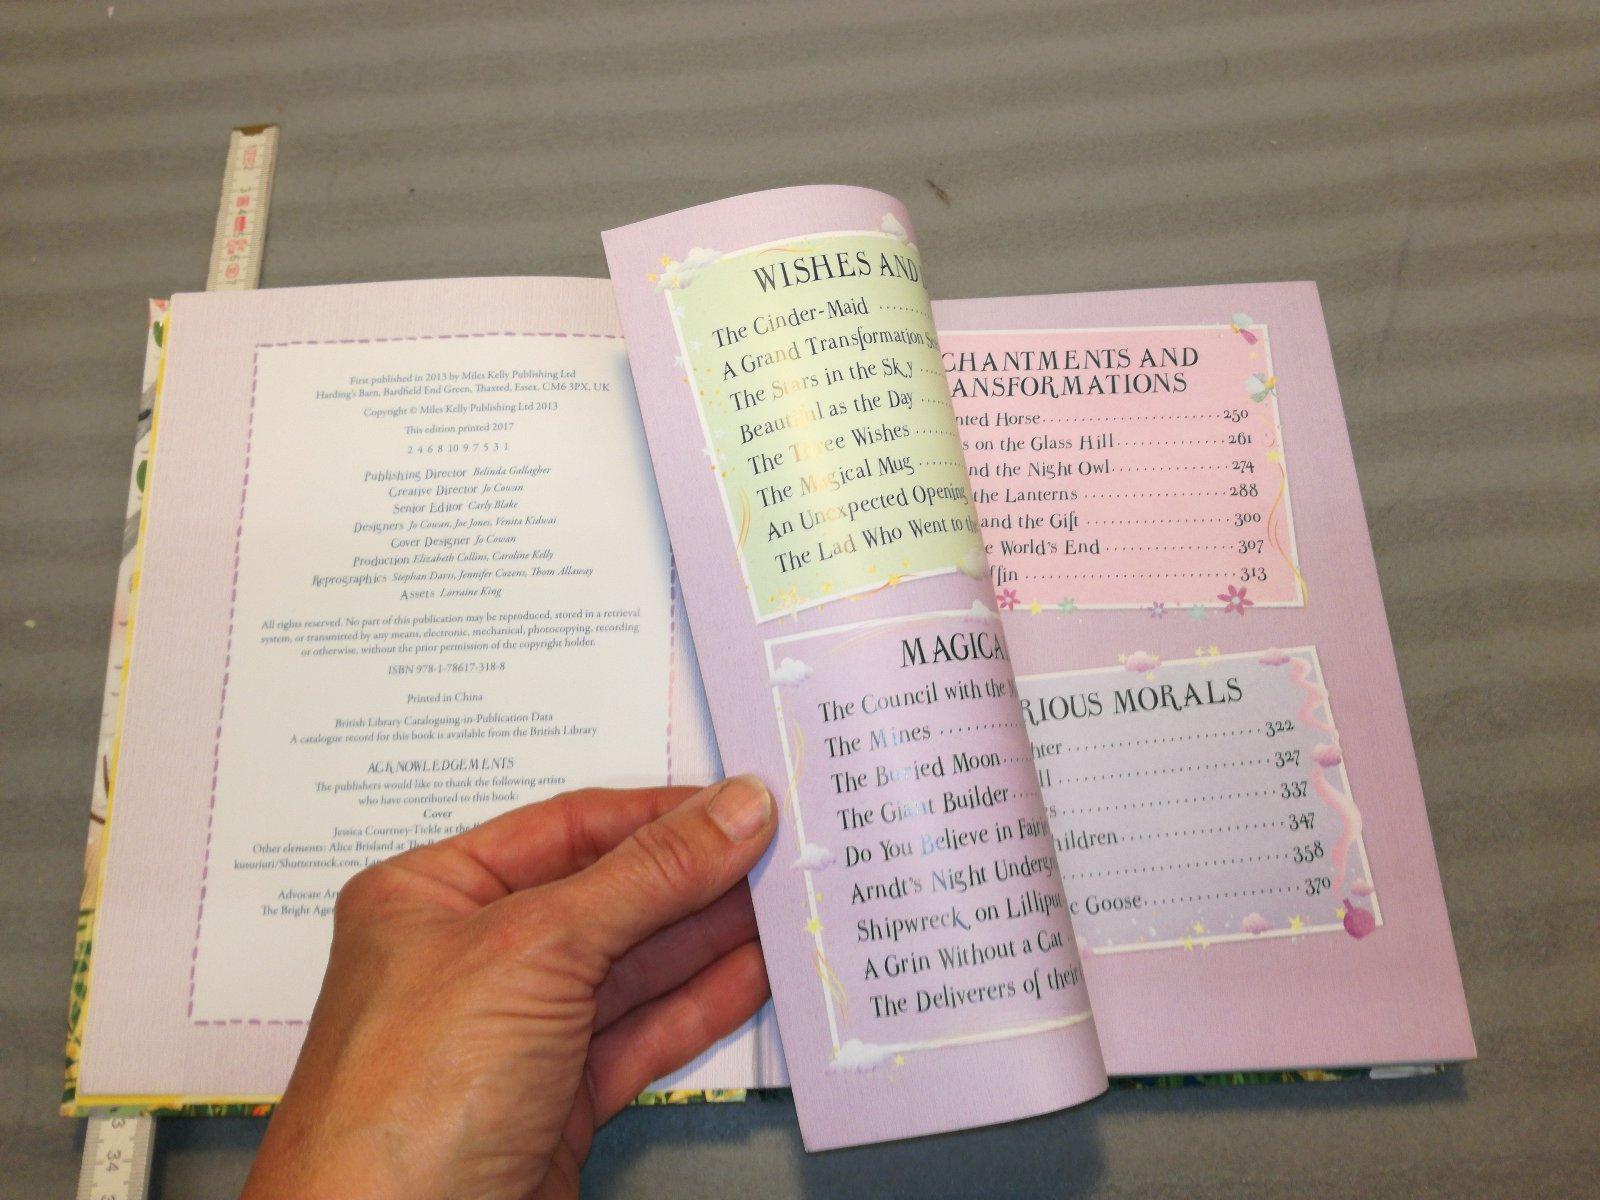 First published in 2013 by Miles Kelly Publishing Ltd
Harding's Barn, Bardfield End Green, Thaxted, Essex, CM6 3PX, UK
Copyright © Miles Kelly Publishing Ltd 2013
This edition printed 2017
2 4 6 8 10 9 7 5 3 1
Publishing Director Belinda Gallagher
Creative Director Jo Cowan
Senior Editor Carly Blake
Designers Jo Cowan, Joe Jones, Venita Kidwai
Cover Designer Jo Cowan
Production Elizabeth Collins, Caroline Kelly
Reprographics Stephan Davis, Jennifer Cozens, Thom Allaway
Assets Lorraine King
All rights reserved. No part of this publication may be reproduced, stored in a retrieval
system, or transmitted by any means, electronic, mechanical, photocopying, recording
or otherwise, without the prior permission of the copyright holder.
ISBN 978-1-78617-318-8
Printed in China
British Library Cataloguing-in-Publication Data
A catalogue record for this book is available from the British Library
ACKNOWLEDGEMENTS
The publishers would like to thank the following artists
who have contributed to this book:
Cover
Jessica Courtney-Tickle at the
Other elements: Alice Brisland at The
kusuriuri/Shutterstock.com,
Advocate
The Bright
WISHES AND
The Cinder-Maid
A Grand Transformation
The Stars in the Sky
Beautiful as the Day
The Three Wishes
The Magical Mug
An Unexpected Opening
The Lad Who Went to the
MAGICA
The Council with the
The Mines
The Buried Moon
The Giant Builder
Do You Believe in
Arndt's Night
Shipwreck on Lilliput
A Grin Without a Cat
The Deliverers of their
CHANTMENTS AND
ANSFORMATIONS
nted Horse 250
s on the Glass Hill 261
nd the Night Owl 274
the Lanterns 288
and the Gift 300
e World's End 307
ffin 313
RIOUS MORALS
hter 322
ll 327
s 337
hildren 347
358
c Goose 370
34